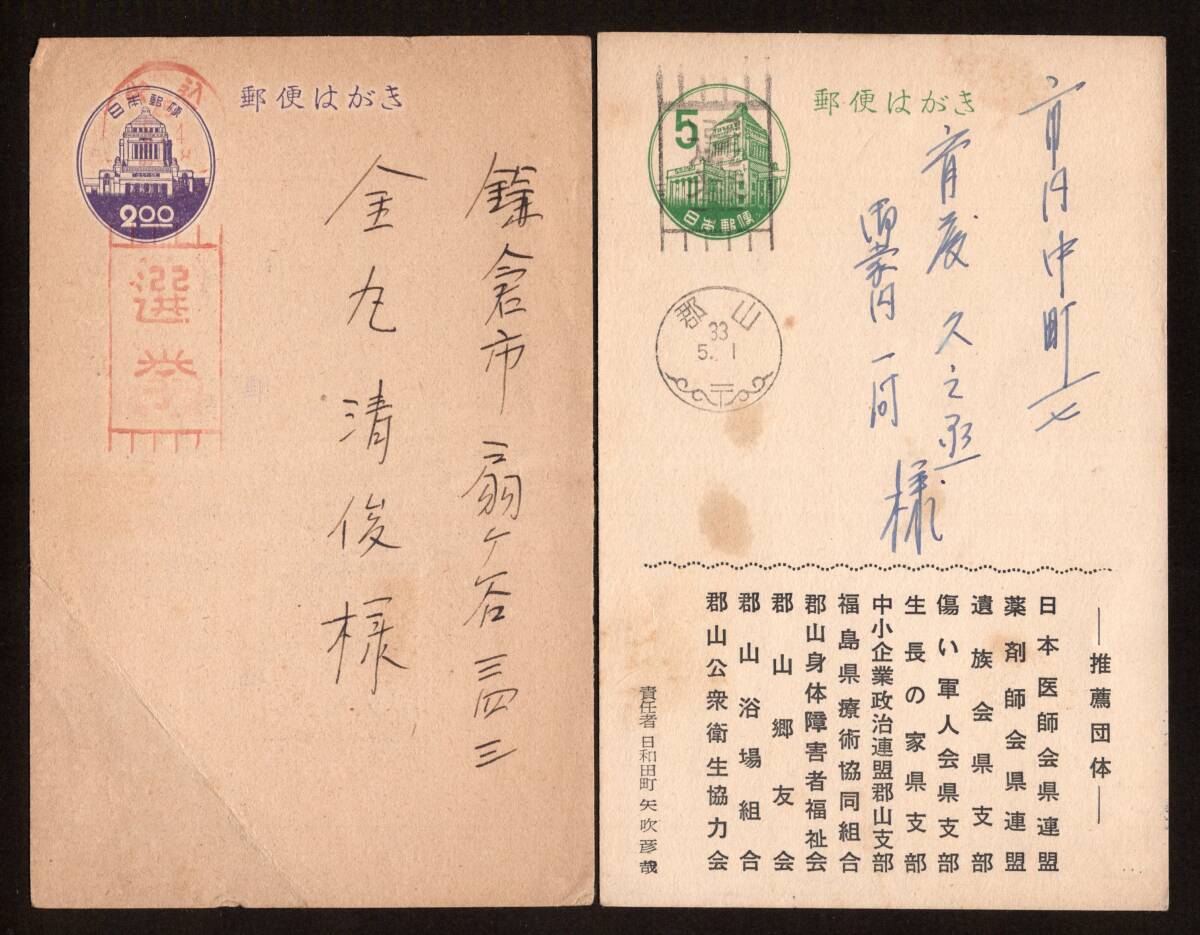 郵便はがき
日本郵便
2.00
選挙
鎌倉市扇ヶ谷三四三
金丸清俊様
郵便はがき
5
日本郵便
郡山
33
5. 1
〒
市内中町一七
久之丞様
―推薦団体―
日本医師会県連盟
薬剤師会県連盟
遺族会県支部
傷い軍人会県支部
生長の家県支部
中小企業政治連盟郡山支部
福島県療術協同組合
郡山身体障害者福祉会
郡山郷友会
郡山浴場組合
郡山公衆衛生協力会
責任者 日和田町 矢吹彦哉